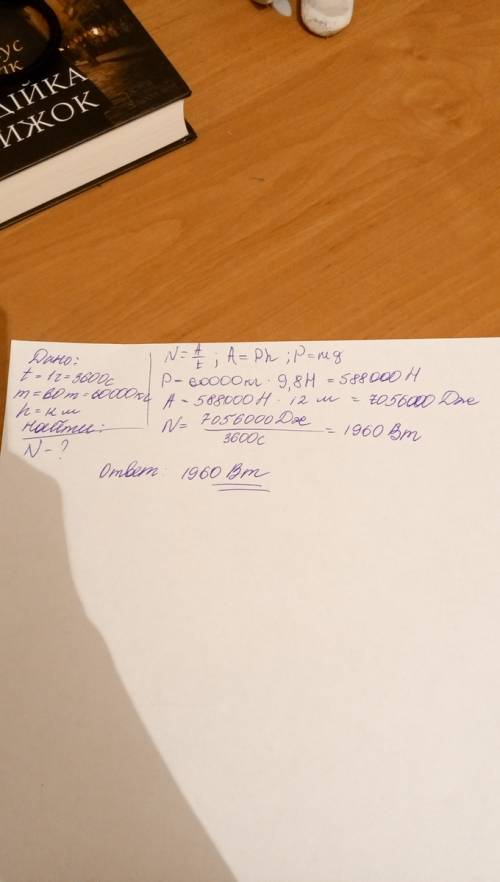 УС
ІК
ДІЙКА
ИЖОК
Дано:
t = 1ч = 3600с
m = 60т = 60000кг
h = м
Найти:
N - ?
N = A/t ; A = Ph ; P = mg
P = 60000кг · 9,8Н = 588000 Н
A = 588000 Н · 12 м = 7056000 Дж
N = 7056000 Дж / 3600с = 1960 Вт
Ответ: 1960 Вт